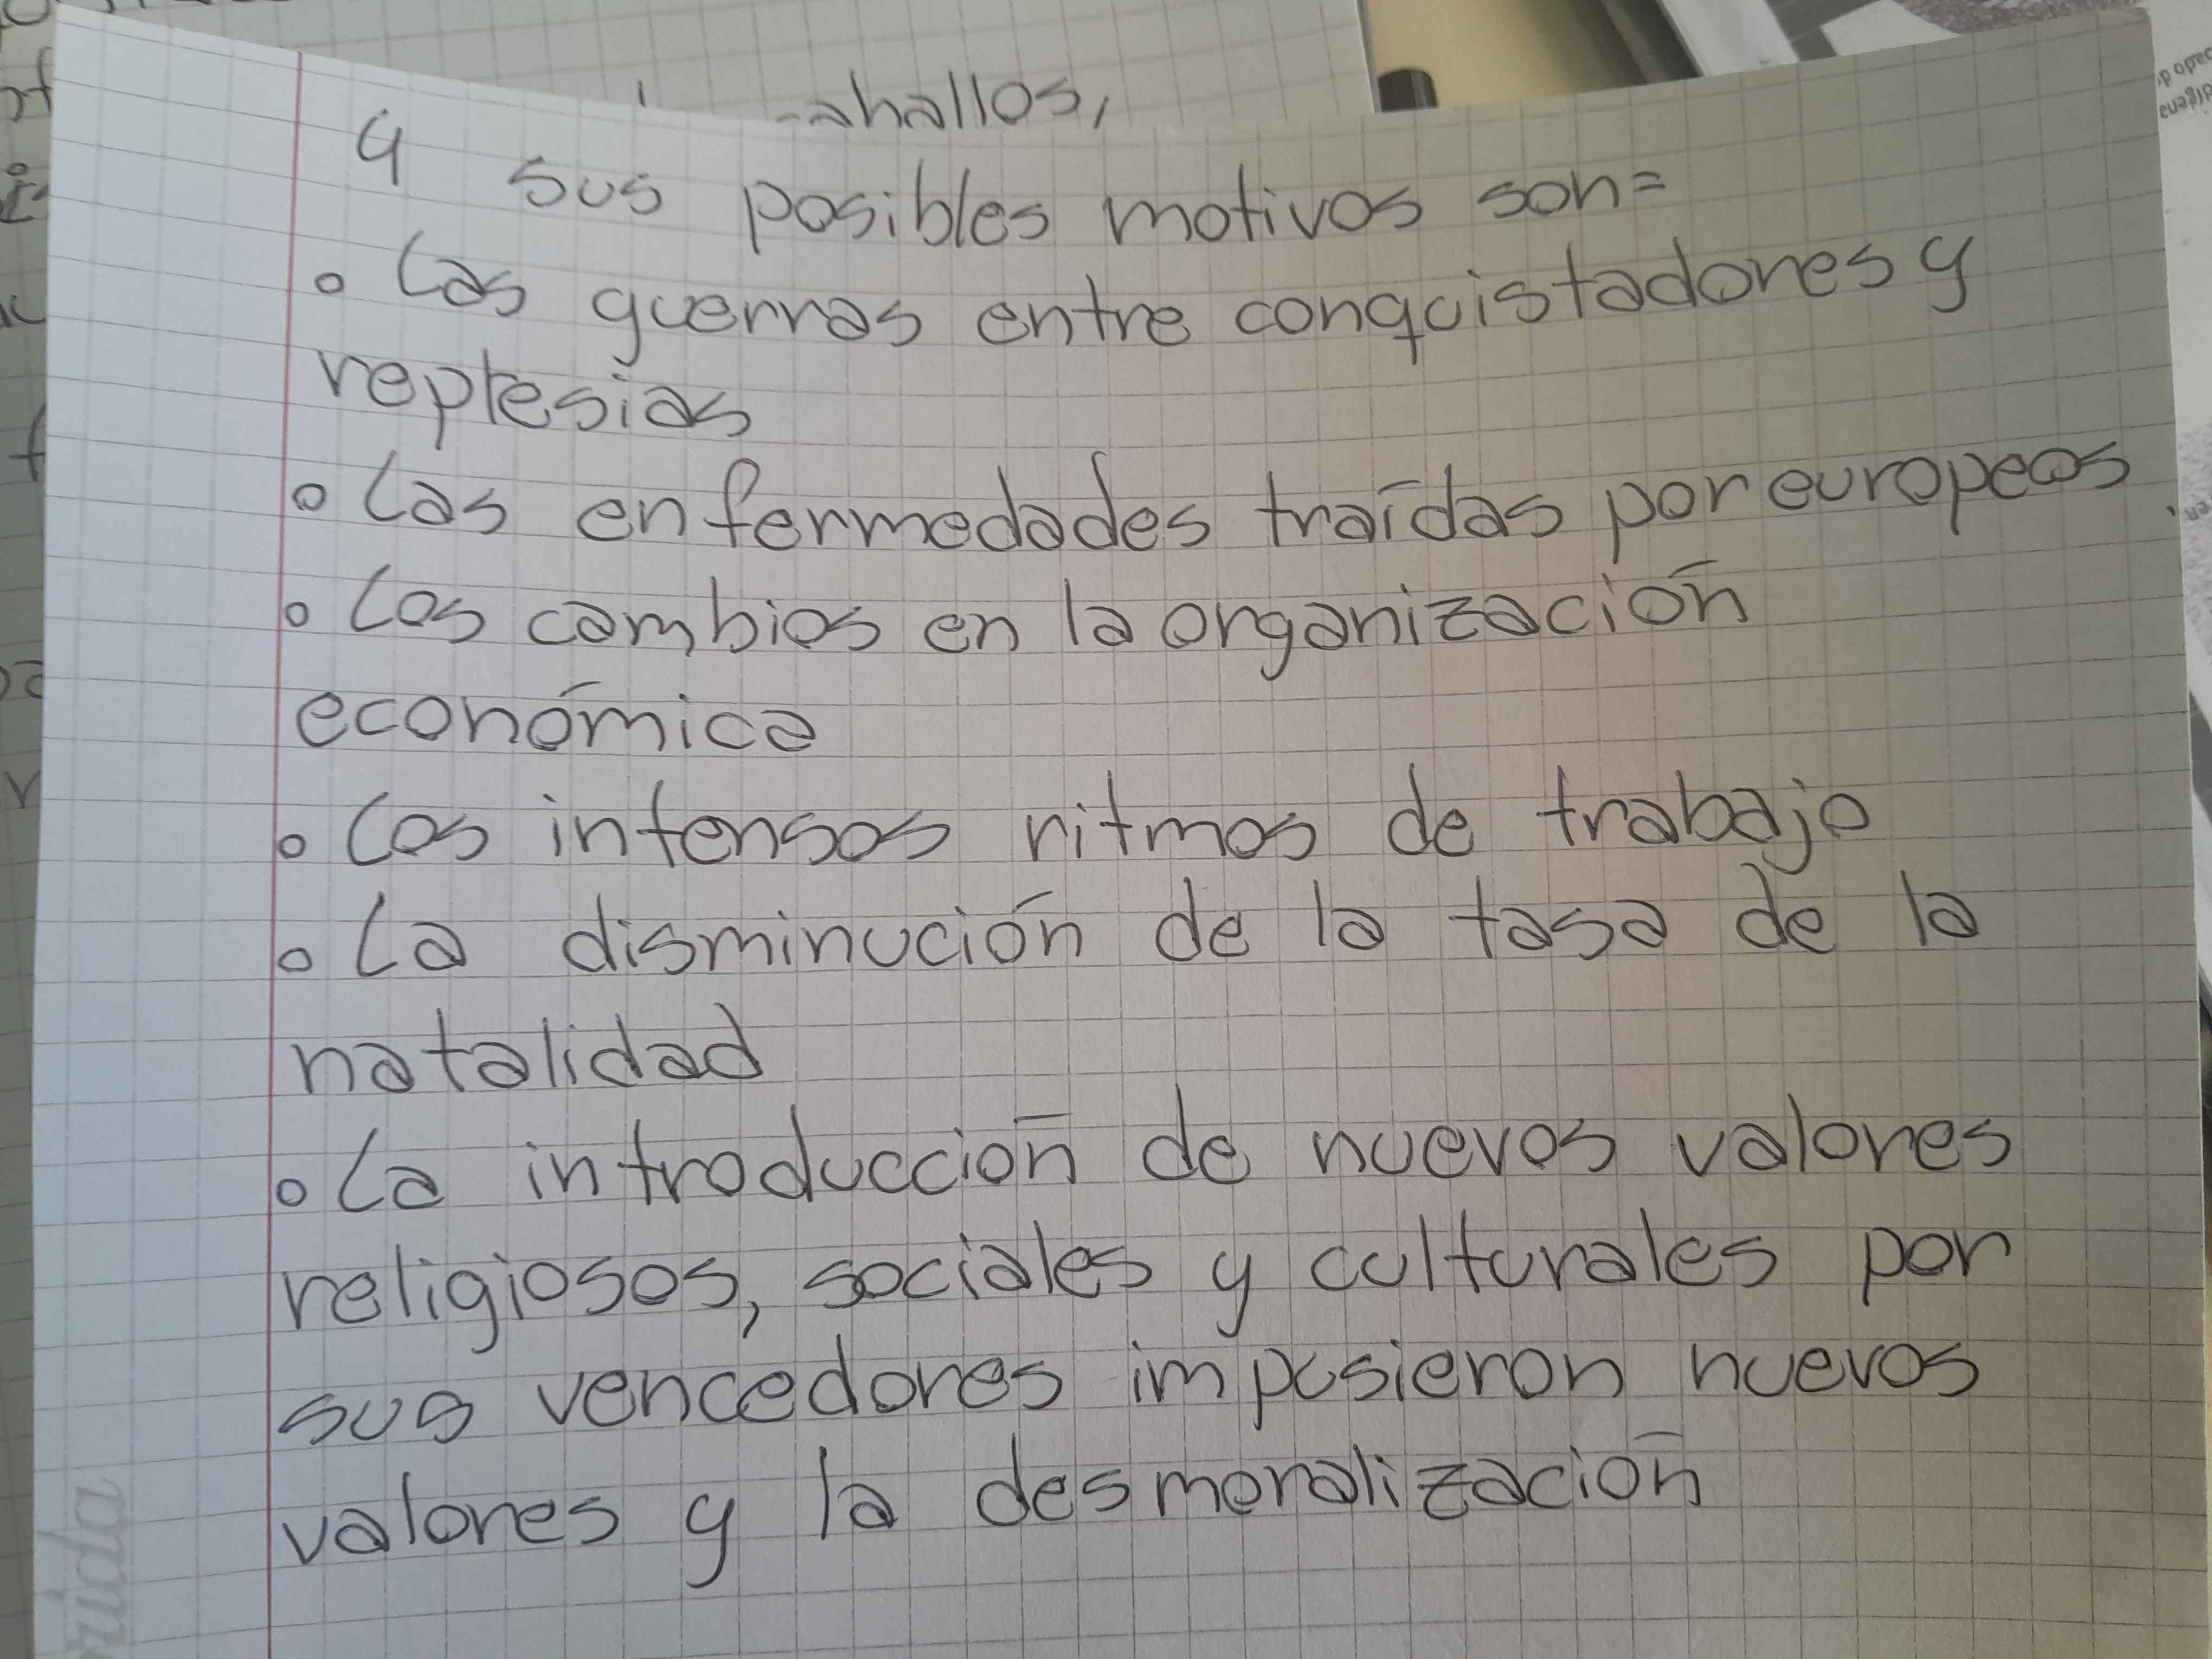 caballos,
4 sus posibles motivos son=
• Las guerras entre conquistadores y
represias
• Las enfermedades traídas por europeos
• Los cambios en la organización
económica
• Los intensos ritmos de trabajo
• La disminución de la tasa de la
natalidad
• La introducción de nuevos valores
religiosos, sociales y culturales por
sus vencedores impusieron nuevos
valores y la desmoralización